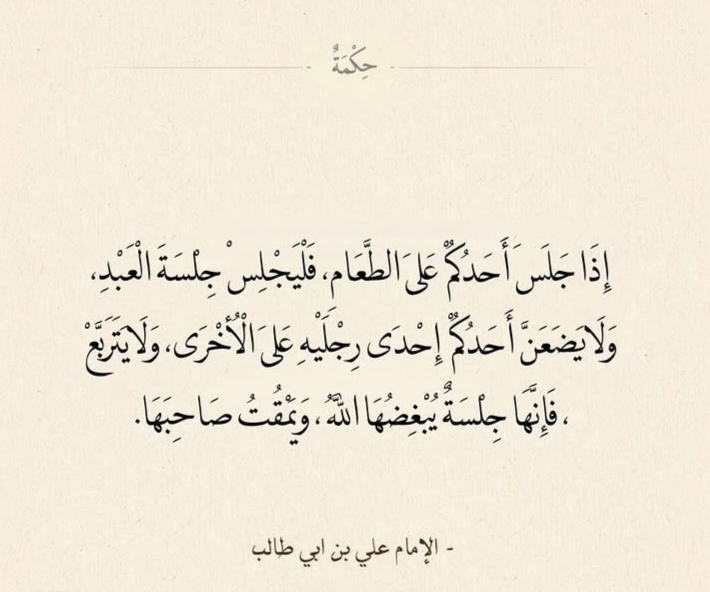 حِكْمَةٌ
إِذَا جَلَسَ أَحَدُكُمْ عَلَى الطَّعَامِ، فَلْيَجْلِسْ جِلْسَةَ الْعَبْدِ،
وَلَا يَضَعَنَّ أَحَدُكُمْ إِحْدَى رِجْلَيْهِ عَلَى الْأُخْرَى، وَلَا يَتَرَبَّعْ
، فَإِنَّهَا جِلْسَةٌ يُبْغِضُهَا اللَّهُ، وَيَمْقُتُ صَاحِبَهَا.
- الإمام علي بن ابي طالب